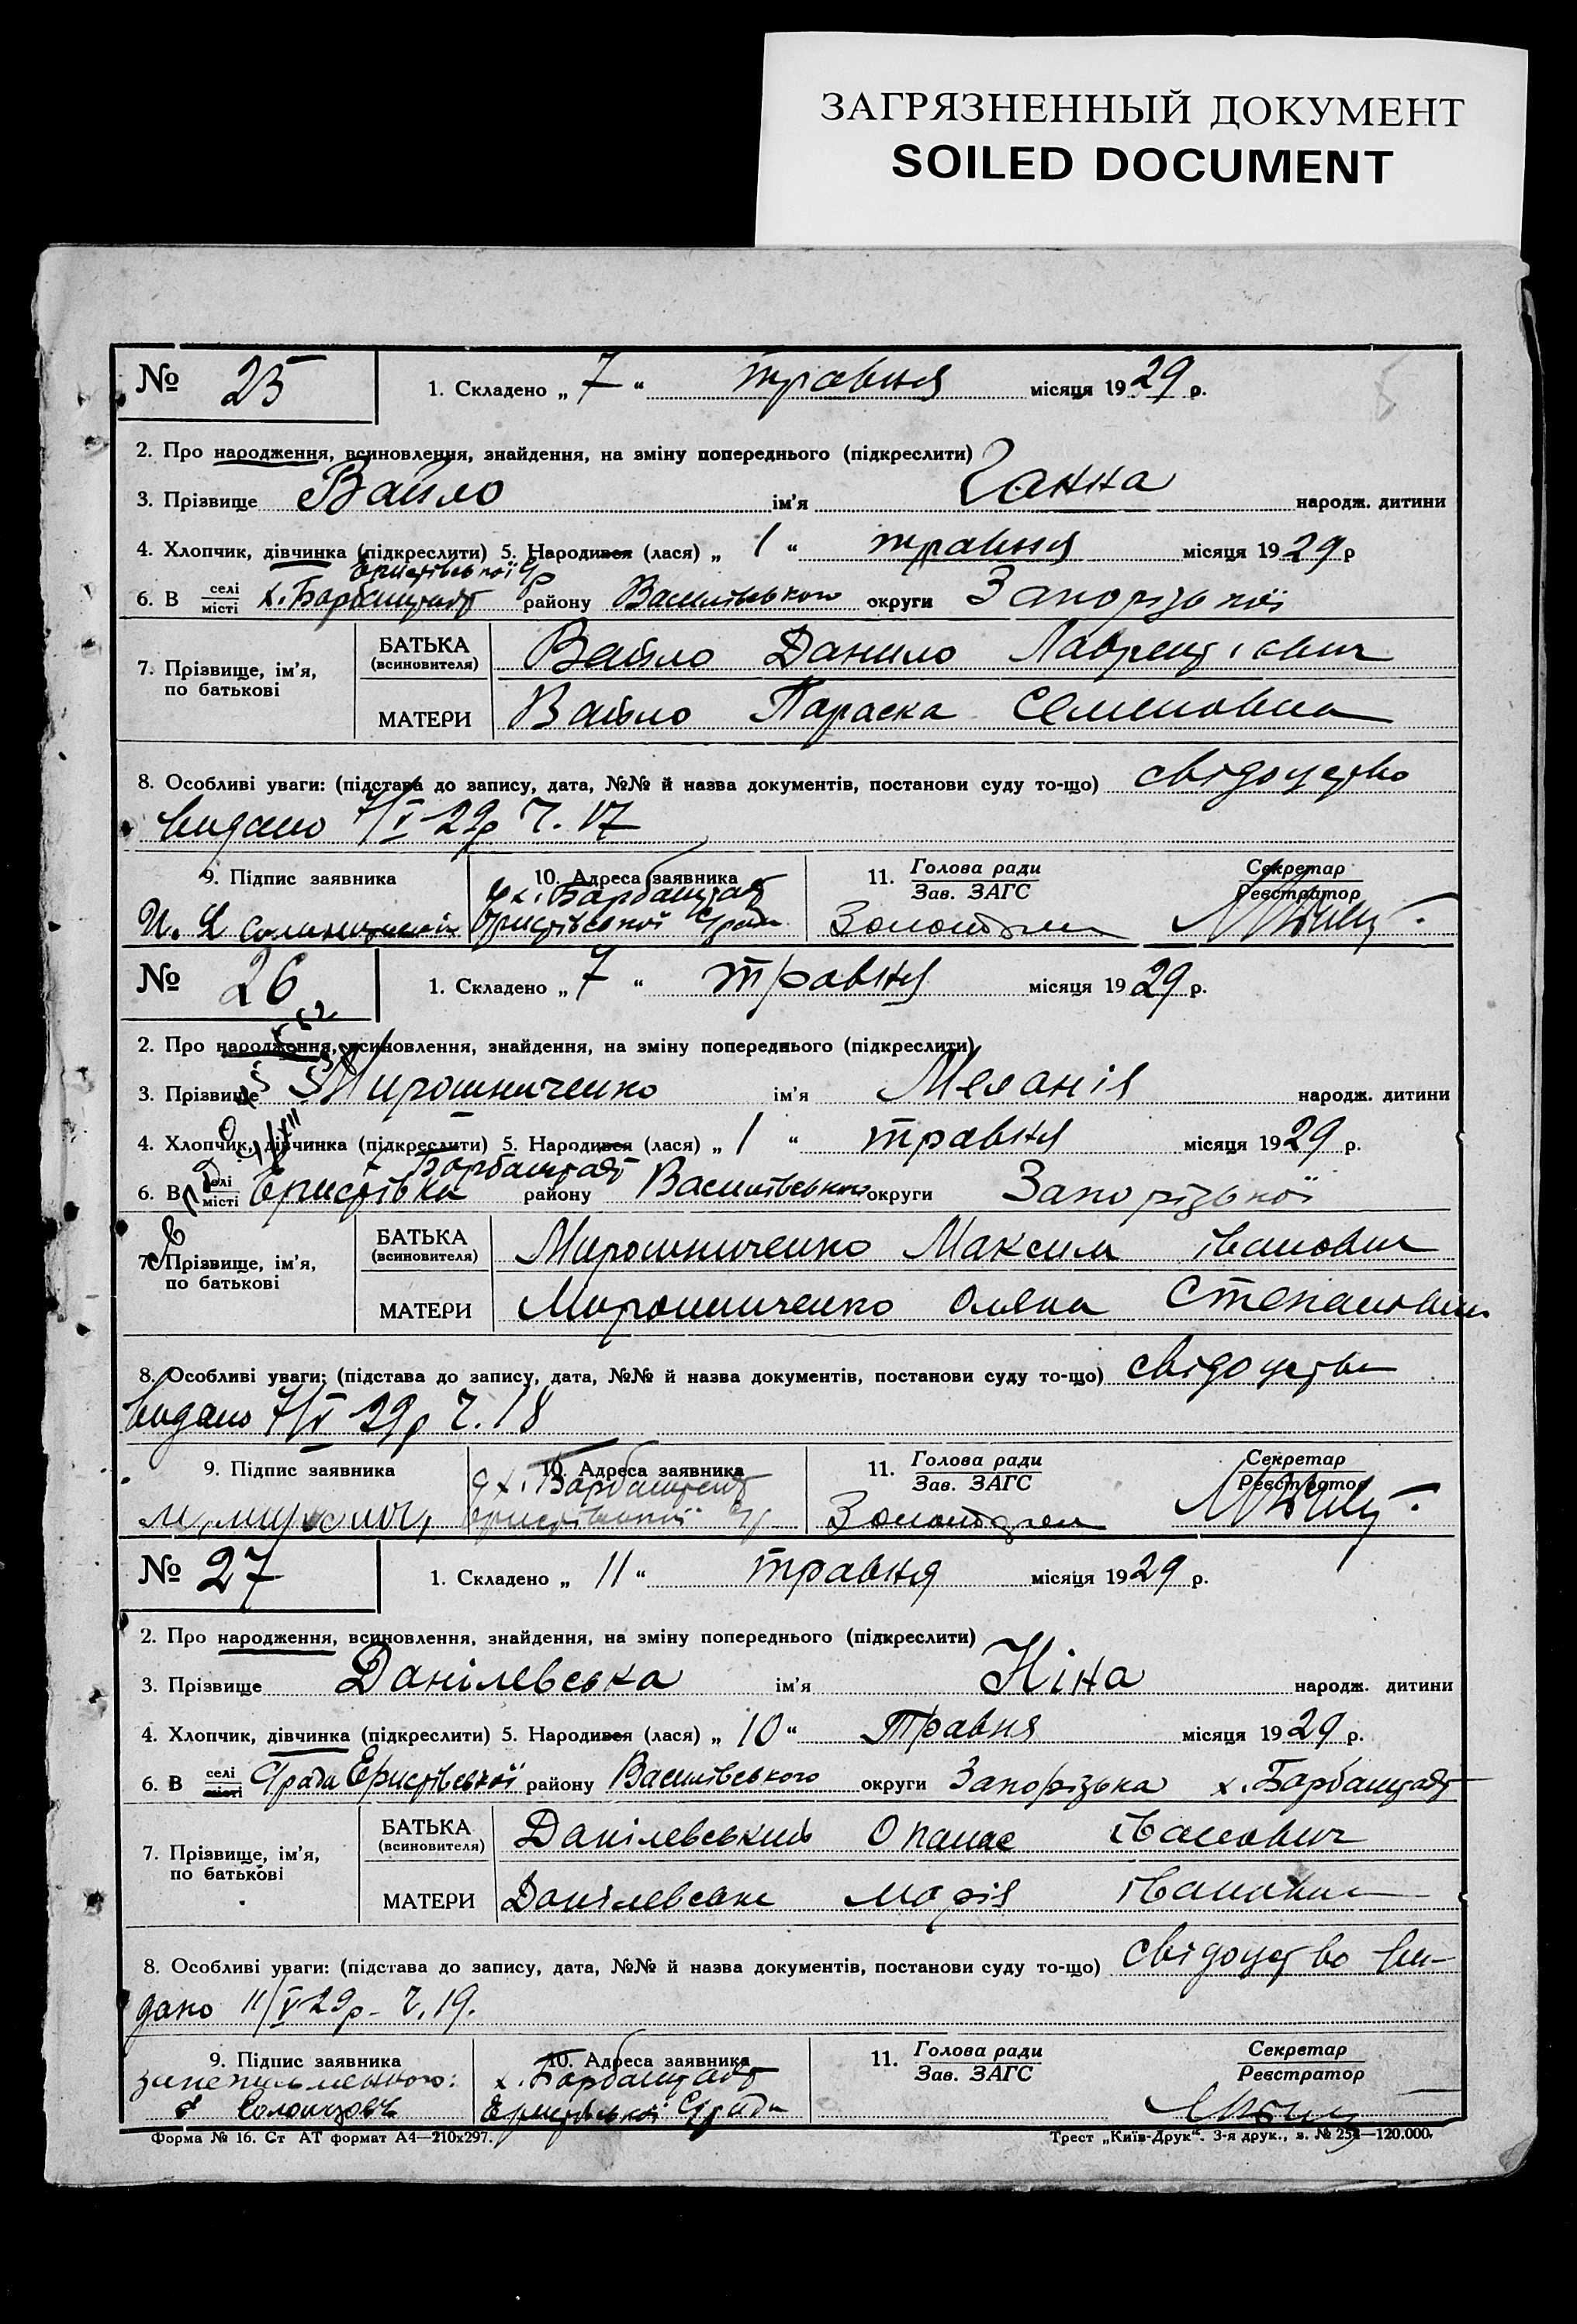 ЗАГРЯЗНЕННЫЙ ДОКУМЕНТ
SOILED DOCUMENT
№ 25 1. Складено „ 7 “ травня місяця 1929 р.
2. Про народження, всиновлення, знайдення, на зміну попереднього (підкреслити)
3. Прізвище Вайло ім'я Ганна народж. дитини
4. Хлопчик, дівчинка (підкреслити) 5. Народився (лася) „ 1 “ травня місяця 1929 р
6. В селі місті х. Барбаштадт району Василівського округи Запорізької
7. Прізвище, ім'я, по батькові
БАТЬКА (всиновителя) Вайло Данило Лаврентієвич
МАТЕРИ Вайло Параска Семеновна
8. Особливі уваги: (підстава до запису, дата, №№ й назва документів, постанови суду то-що) свідоцтво
видано 7/V 29р Ч. 17
9. Підпис заявника 10. Адреса заявника 11. Голова ради Зав. ЗАГС Секретар Реєстратор
х. Барбаштадт
№ 26 1. Складено „ 7 “ травня місяця 1929 р.
2. Про народження, всиновлення, знайдення, на зміну попереднього (підкреслити)
3. Прізвище Мирошниченко ім'я Меланія народж. дитини
4. Хлопчик, дівчинка (підкреслити) 5. Народився (лася) „ 1 “ травня місяця 1929 р.
Барбаштадт
6. В селі місті Еристівка району Василівського округи Запорізької
7. Прізвище, ім'я, по батькові
БАТЬКА (всиновителя) Мирошниченко Максим Іванович
МАТЕРИ Мирошниченко Оляна Степановна
8. Особливі уваги: (підстава до запису, дата, №№ й назва документів, постанови суду то-що) свідоцтво
видано 7/V 29р Ч. 18
9. Підпис заявника 10. Адреса заявника 11. Голова ради Зав. ЗАГС Секретар Реєстратор
х. Барбаштадт
№ 27 1. Складено „ 11 “ травня місяця 1929 р.
2. Про народження, всиновлення, знайдення, на зміну попереднього (підкреслити)
3. Прізвище Данілевська ім'я Ніна народж. дитини
4. Хлопчик, дівчинка (підкреслити) 5. Народився (лася) „ 10 “ травня місяця 1929 р.
6. В селі місті С/ради Еристівської району Василівського округи Запорізька х. Барбаштадт
7. Прізвище, ім'я, по батькові
БАТЬКА (всиновителя) Данілевський Опанас Іванович
МАТЕРИ Данілевська Марія Івановна
8. Особливі уваги: (підстава до запису, дата, №№ й назва документів, постанови суду то-що) свідоцтво ви-
дано 11/V 29р. Ч. 19.
9. Підпис заявника 10. Адреса заявника 11. Голова ради Зав. ЗАГС Секретар Реєстратор
х. Барбаштадт
Еристівської С/ради
Форма № 16. Ст АТ формат А4—210х297. Трест „Київ-Друк“. 3-я друк., з. № 254—120.000.